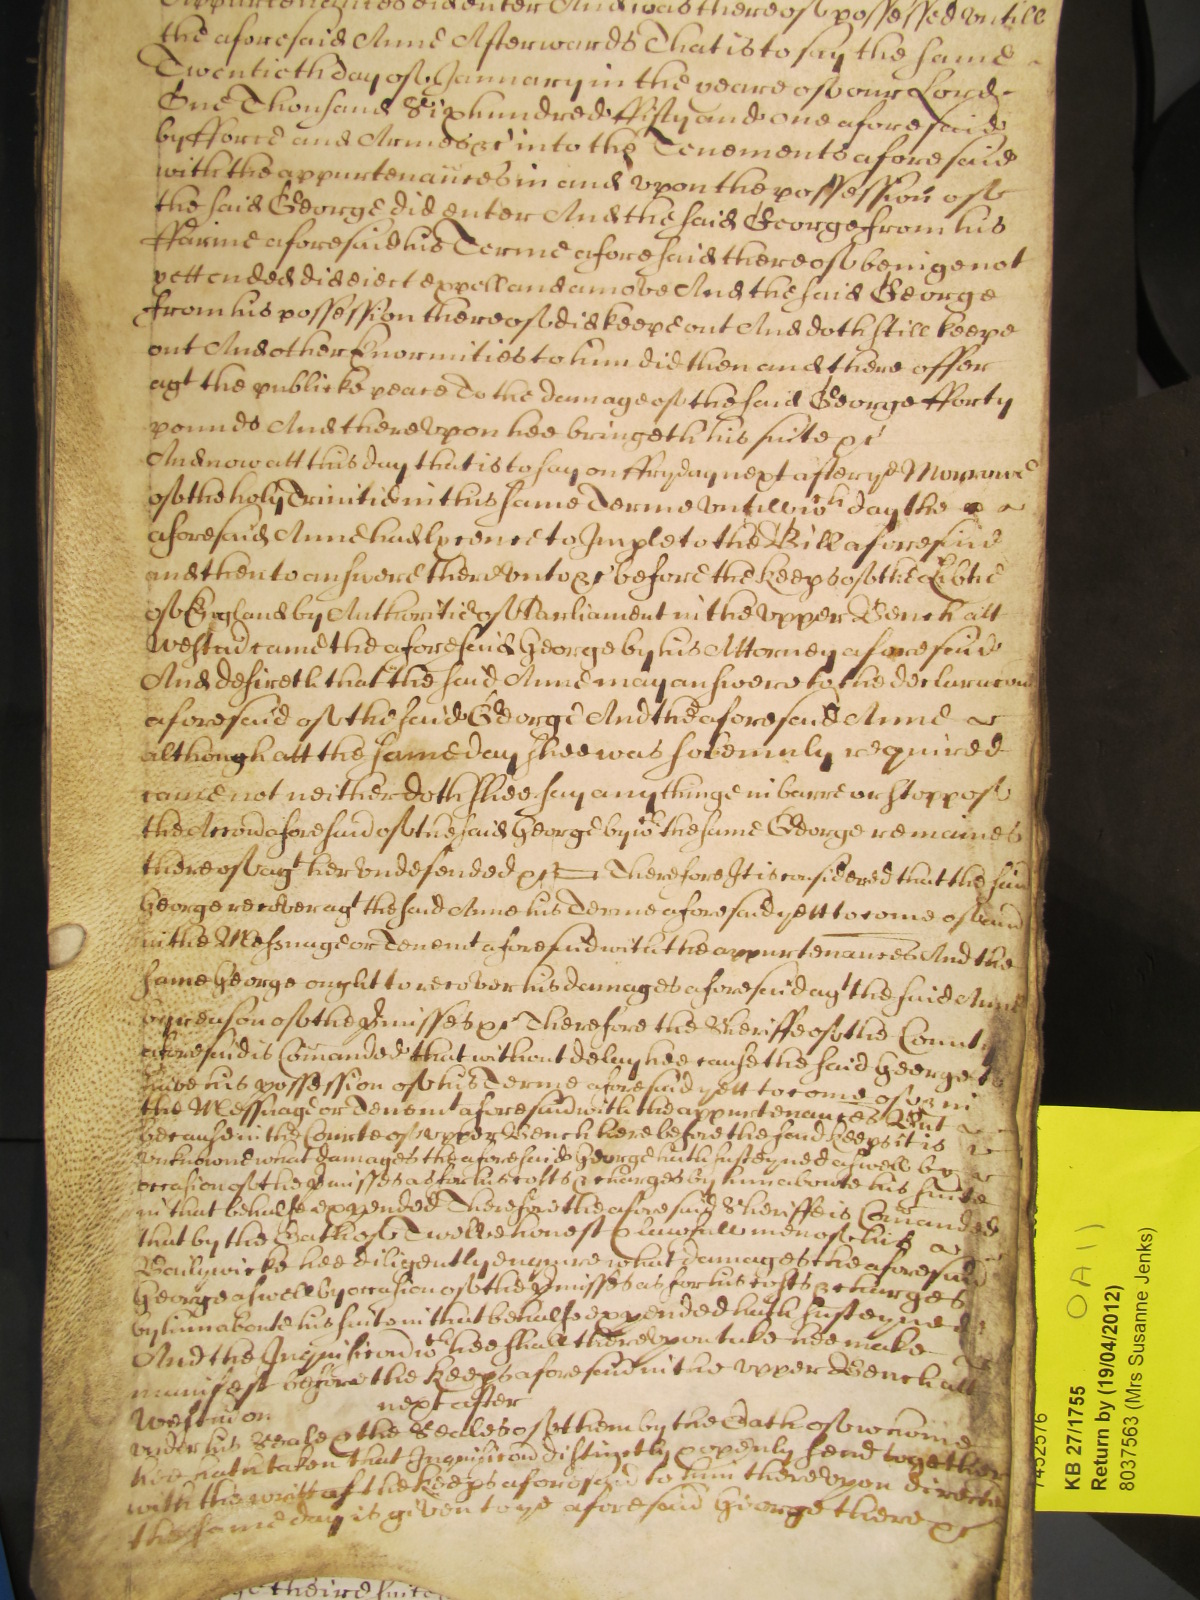 Appurtenances did enter And was thereof possessed untill
the aforesaid Anne Afterwards That is to say the same
Twentieth day of January in the yeare of our Lord
One Thousand Sixhundred ffifty and one aforesaid
by fforce and Armes &c into the Tenements aforesaid
with the appurtenances in and vpon the possession of
the said George did enter And the said George from his
ffarme aforesaid his Terme aforesaid thereof beinge not
yett ended did eiect expell and amove And the said George
from his possession thereof did keepe out And doth still keepe
out And other Enormities to him did then and there offer
agt the publicke peace To the damage of the said George fforty
pounds And therevpon hee bringeth his suite &c
And now att this day that is to say on ffryday next after ye Morrowe
of the holy Trinitie in this same Terme vntill wch day the
aforesaid Anne had lycence to Imple to the Bill aforesaid
and then to answere therevnto &c before the keeps of the Libtie
of England by Authoritie of Parliament in the vpper Bench att
Westm came the aforesaid George by his Attorney aforesaid
And desireth that the said Anne may answere to the declaracon
aforesaid of the said George And the aforesaid Anne
although att the same day shee was solemnly required
came not neither doth shee say any thinge in barre or stopp of
the Accon aforesaid of the said George by wch the same George remaines
thereof agt her vndefended &c Therefore It is considered that the said
George recover agt the said Anne his Terme aforesaid yett to come of and
in the Messuage or Tenemt aforesaid with the appurtenances And the
same George ought to recover his damages aforesaid agt the said Anne
by reason of the pmisses &c Therefore the Sheriffe of the County
aforesaid is Comanded that without delay hee cause the said George to
have his possession of his Terme aforesaid yett to come of & in
the Messuage or Tenemt aforesaid with the appurtenances But
because in the Courte of vpper Bench here before the said keeps it is
vnknowne what damages the aforesaid George hath susteyned aswell by
occasion of the pmisses as for his costs & charges by him aboute his suite
in that behalfe expended Therefore the aforesaid Sheriffe is Comanded
that by the Oath of Twelve honest & lawfull men of his
Bailywicke hee diligently enquire what damages the aforesaid
George aswell by occasion of the pmisses as for his costs & charges
by him aboute his suite in that behalfe expended hath susteyned
And the Inquisicon wch hee shall therevpon take hee make
manifest before the keeps aforesaid in the vpper Bench att
Westm on next after
vnder his Seale & the Seales of them by the Oath of whome
hee hath taken that Inquisicon distinctly & openly send together
with the writt of the keeps aforesaid to him therevpon directed
the same day is given to ye aforesaid George there &c
theire suite
7452576
OA11
KB 27/1755
Return by (19/04/2012)
8037563 (Mrs Susanne Jenks)